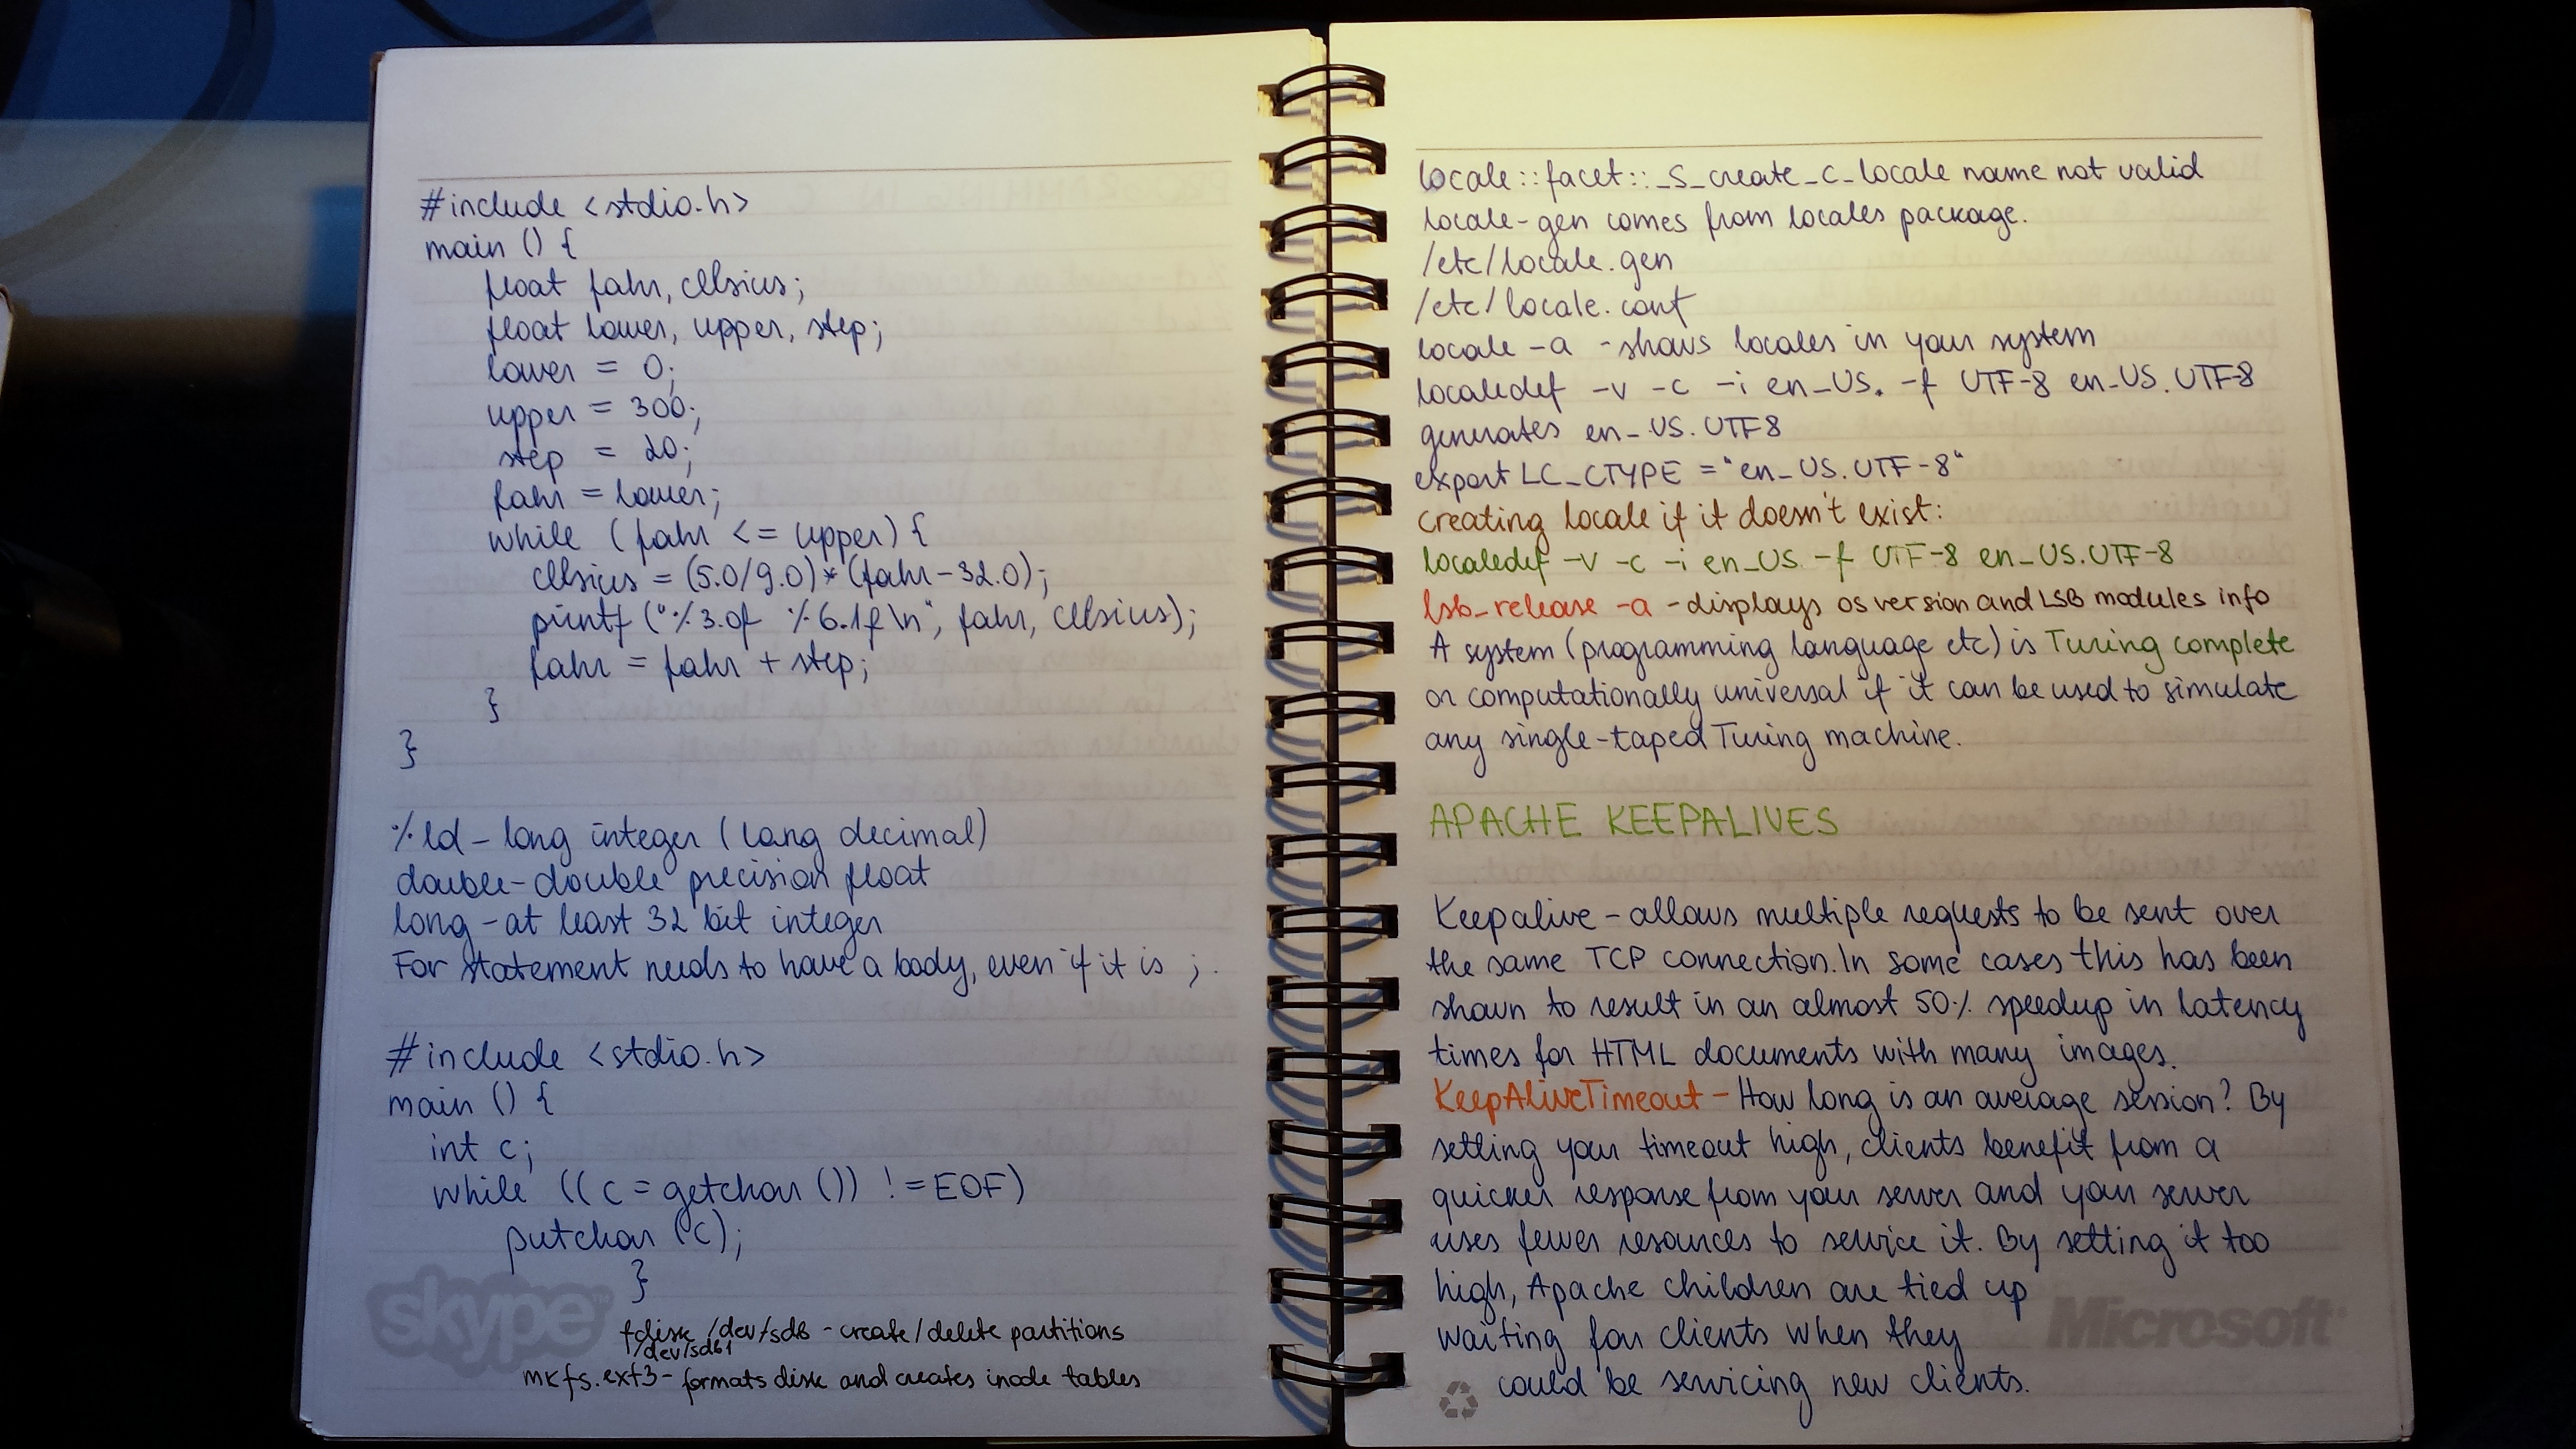 #include <stdio.h>
main () {
float fahr, celsius;
float lower, upper, step;
lower = 0;
upper = 300;
step = 20;
fahr = lower;
while (fahr <= upper) {
celsius = (5.0/9.0)*(fahr-32.0);
printf ("%3.0f %6.1f\n", fahr, celsius);
fahr = fahr + step;
}
}
%ld - long integer (long decimal)
double - double precision float
long - at least 32 bit integer
For statement needs to have a body, even if it is ;.
#include <stdio.h>
main () {
int c;
while ((c = getchar ()) != EOF)
putchar (c);
}
skype
fdisk /dev/sdb - create/delete partitions
/dev/sdb1
mkfs.ext3 - formats disk and creates inode tables
locale::facet::_S_create_c_locale name not valid
locale-gen comes from locales package.
/etc/locale.gen
/etc/locale.conf
locale -a - shows locales in your system
localedef -v -c -i en_US. -f UTF-8 en_US.UTF-8
generates en_US.UTF8
export LC_CTYPE = "en_US.UTF-8"
creating locale if it doesn't exist:
localedef -v -c -i en_US -f UTF-8 en_US.UTF-8
lsb_release -a - displays os version and LSB modules info
A system (programming language etc) is Turing complete
or computationally universal if it can be used to simulate
any single-taped Turing machine.
APACHE KEEPALIVES
Keepalive - allows multiple requests to be sent over
the same TCP connection. In some cases this has been
shown to result in an almost 50% speedup in latency
times for HTML documents with many images.
KeepAliveTimeout - How long is an average session? By
setting your timeout high, clients benefit from a
quicker response from your server and your server
uses fewer resources to service it. By setting it too
high, Apache children are tied up
waiting for clients when they
could be servicing new clients.
Microsoft